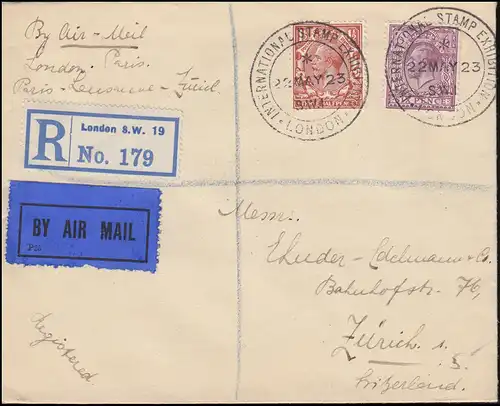 By Air-Mail
London-Paris.
Paris-Lausanne-Zürich
INTERNATIONAL STAMP EXHIBITION
*
22 MAY 23
S.W.
LONDON
INTERNATIONAL STAMP EXHIBITION
*
22 MAY 23
S.W.
LONDON
PENCE
R
London S.W. 19
No. 179
BY AIR MAIL
P26
Registered
Messrs.
Edelmann & Co.
Bahnhofstr. 76,
Zürich 1.
Switzerland.